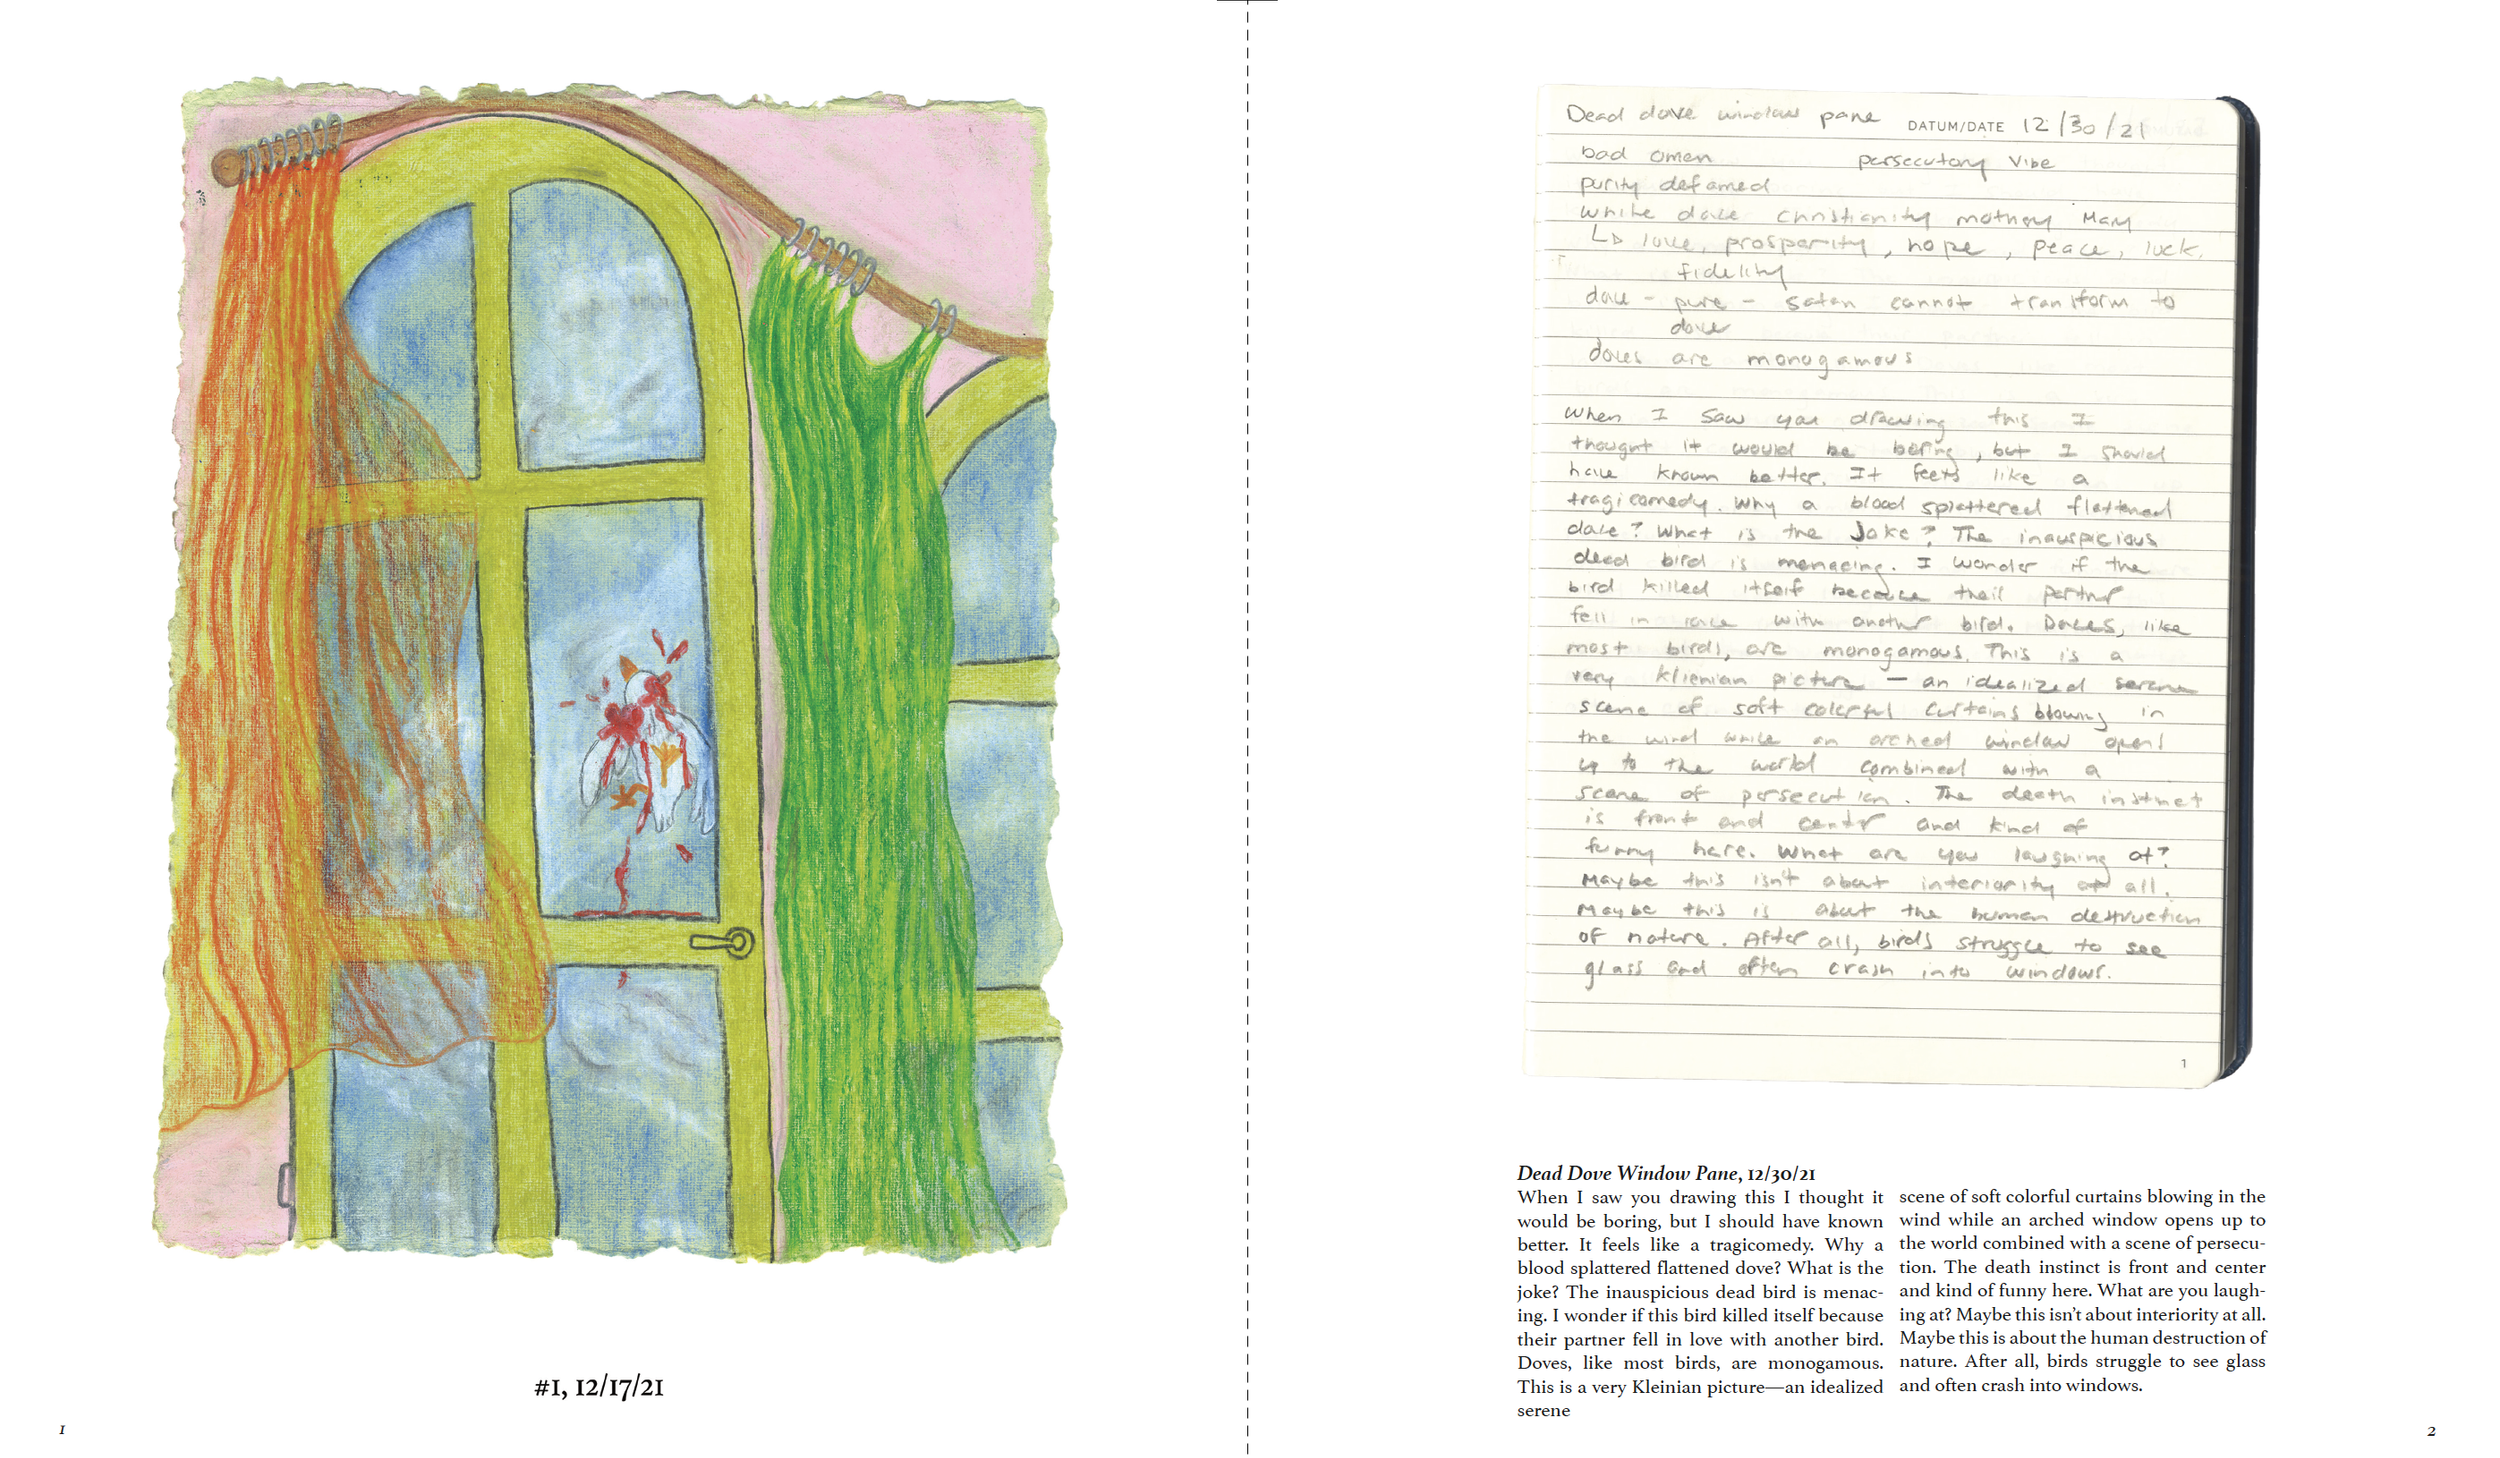 #1, 12/17/21
1
Dead dove window pane DATUM/DATE 12/30/21
bad omen persecutory vibe
purity defamed
white dove christianity mothey Mary
↳ love, prosperity, hope, peace, luck,
fidelity
dove - pure - satan cannot transform to
dove
doves are monogamous
When I saw you drawing this I
thought it would be boring, but I should
have known better. It feels like a
tragicomedy. Why a blood splattered flattened
dove? What is the Joke? The inauspicious
dead bird is menacing. I wonder if the
bird killed itself because their partner
fell in love with another bird. Doves, like
most birds, are monogamous. This is a
very klienian picture — an idealized serene
scene of soft colorful curtains blowing in
the wind while an arched window opens
up to the world combined with a
scene of persecution. The death instinct
is front and center and kind of
funny here. What are you laughing at?
Maybe this isn't about interiority at all.
Maybe this is about the human destruction
of nature. After all, birds struggle to see
glass and often crash into windows.
1
Dead Dove Window Pane, 12/30/21
When I saw you drawing this I thought it
would be boring, but I should have known
better. It feels like a tragicomedy. Why a
blood splattered flattened dove? What is the
joke? The inauspicious dead bird is menac-
ing. I wonder if this bird killed itself because
their partner fell in love with another bird.
Doves, like most birds, are monogamous.
This is a very Kleinian picture—an idealized
serene
scene of soft colorful curtains blowing in the
wind while an arched window opens up to
the world combined with a scene of persecu-
tion. The death instinct is front and center
and kind of funny here. What are you laugh-
ing at? Maybe this isn't about interiority at all.
Maybe this is about the human destruction of
nature. After all, birds struggle to see glass
and often crash into windows.
2